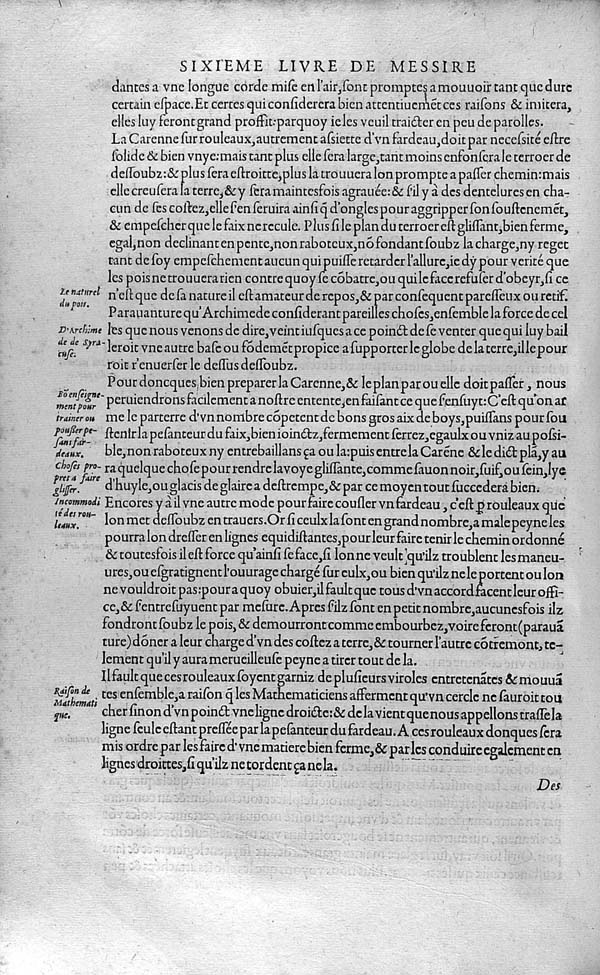 SIXIEME LIVRE DE MESSIRE
dantes a vne longue corde mise en l'air, sont promptes a mouuoir tant que dure
certain eſpace. Et certes qui conſiderera bien attentiuemēt ces raiſons & imitera,
elles luy feront grand proffit: parquoy ie les veuil traicter en peu de parolles.
La Carenne ſur rouleaux, autrement aſsiette d'vn fardeau, doit par neceſsité eſtre
ſolide & bien vnye: mais tant plus elle ſera large, tant moins enfonſera le terroer de
deſſoubz: & plus ſera eſtroitte, plus la trouuera lon prompte a paſſer chemin: mais
elle creuſera la terre, & y ſera maintesfois agrauée: & ſ'il y à des dentelures en cha-
cun de ſes coſtez, elle ſ'en ſeruira ainſi q̃ d'ongles pour aggripper ſon ſouſtenemēt,
& empeſcher que le faix ne recule. Plus ſi le plan du terroer eſt gliſſant, bien ferme,
egal, non declinant en pente, non raboteux, nō fondant ſoubz la charge, ny reget
tant de ſoy empeſchement aucun qui puiſſe retarder l'allure, ie dy pour verité que
les pois ne trouuera rien contre quoy ſe cōbatre, ou qui le face refuſer d'obeyr, ſi ce
Le naturel
du pois.
n'eſt que de ſa nature il eſt amateur de repos, & par conſequent pareſſeux ou retif.
Parauanture qu'Archimede conſiderant pareilles choſes, enſemble la force de cel
D'Archime
de de Syra-
cuſe.
les que nous venons de dire, veint iuſques a ce poinct de ſe venter que qui luy bail
leroit vne autre baſe ou fōdemēt propice a ſupporter le globe de la terre, il le pour
roit r'enuerſer le deſſus deſſoubz.
Pour doncques bien preparer la Carenne, & le plan par ou elle doit paſſer, nous
Bō enſeigne-
ment pour
trainer ou
pouſſer pe-
ſans far-
deaux.
peruiendrons facilement a noſtre entente, en faiſant ce que ſ'enſuyt: C'eſt qu'on ar
me le parterre d'vn nombre cōpetent de bons gros aix de boys, puiſſans pour ſou
ſtenir la peſanteur du faix, bien ioinctz, fermement ſerrez, egaulx ou vniz au poſsi-
ble, non raboteux ny entrebaillans ça ou la: puis entre la Carēne & le dict plā, y au
Choſes pro-
pres a faire
gliſſer.
ra quelque choſe pour rendre la voye gliſſante, comme ſauon noir, ſuif, ou ſein, lye
d'huyle, ou glacis de glaire a deſtrempe, & par ce moyen tout ſuccedera bien.
Incommodi
té des rou-
leaux.
Encores y à il vne autre mode pour faire couſler vn fardeau, c'eſt p̱ rouleaux que
lon met deſſoubz en trauers. Or ſi ceulx la ſont en grand nombre, a male peyne les
pourra lon dreſſer en lignes equidiſtantes, pour leur faire tenir le chemin ordonné
& toutesfois il eſt force qu'ainſi ſe face, ſi lon ne veult qu'ilz troublent les maneu-
ures, ou eſgratignent l'ouurage chargé ſur eulx, ou bien qu'ilz ne le portent ou lon
ne vouldroit pas: pour a quoy obuier, il fault que tous d'vn accord facent leur offi-
ce, & ſ'entreſuyuent par meſure. Apres ſ'ilz ſont en petit nombre, aucunesfois ilz
fondront ſoubz le pois, & demourront comme embourbez, voire feront (parauā
ture) dōner a leur charge d'vn des coſtez a terre, & tourner l'autre cōtremont, te-
lement qu'il y aura merueilleuſe peyne a tirer tout de la.
Il fault que ces rouleaux ſoyent garniz de pluſieurs viroles entretenātes & mouuā
Raiſon de
Mathemati
que.
tes enſemble, a raiſon q̃ les Mathematiciens afferment qu'vn cercle ne ſauroit tou
cher ſinon d'vn poinct vne ligne droicte: & de la vient que nous appellons traſſe la
ligne ſeule eſtant preſſée par la peſanteur du fardeau. A ces rouleaux donques ſera
mis ordre par les faire d'vne matiere bien ferme, & par les conduire egalement en
lignes droittes, ſi qu'ilz ne tordent ça ne la.
Des